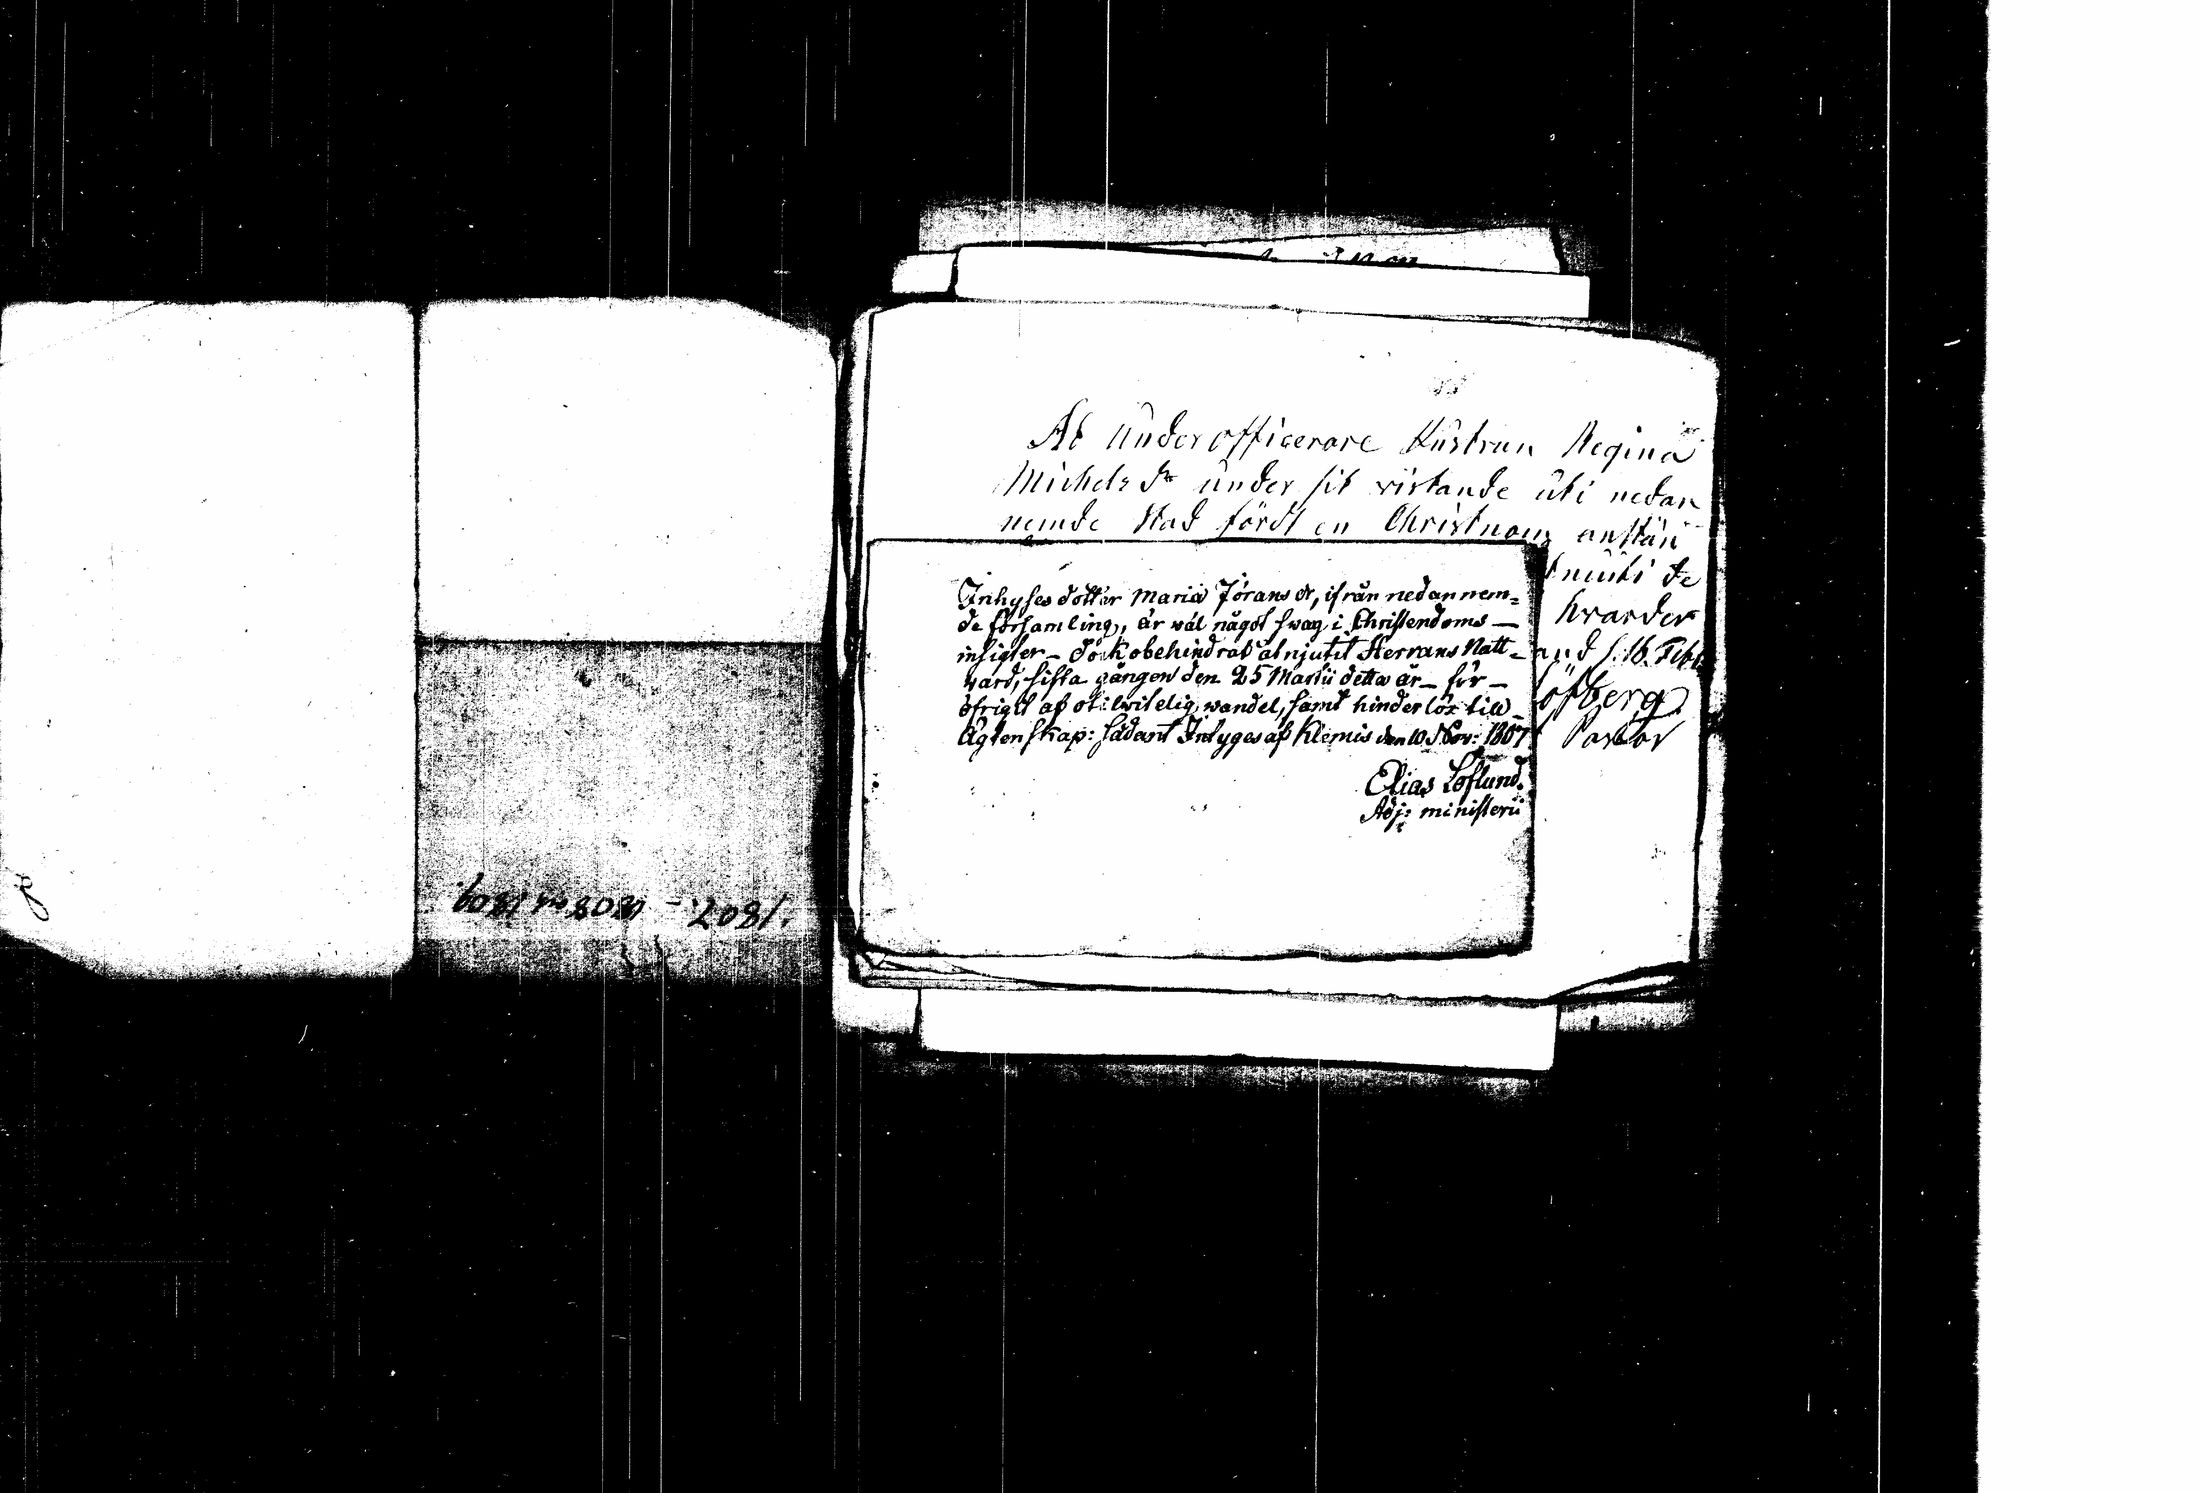 At Underofficerare Hustrun Regina
Michels dr under sit vistande uti nedan
nemde Stad fördt en Christnans anstän
de
hvarder
and d. 16 Febr
öfberg
Pastor
Inhyses dotter Maria Jörans dr, ifrån nedannem=
de församling, är väl något swag i Christendoms —
insigter — dock obehindrat åtnjutit Herrans Natt=
vard, sista gången den 25 Martii detta år — för —
öfrigit af otilwitelig wandel, samt hinderlös till
Ägtenskap: sådant Intygas af Klemis den 10 Nov: 1807
Elias Löflund.
Adj: ministerii
1807. — 1808 m 1809.